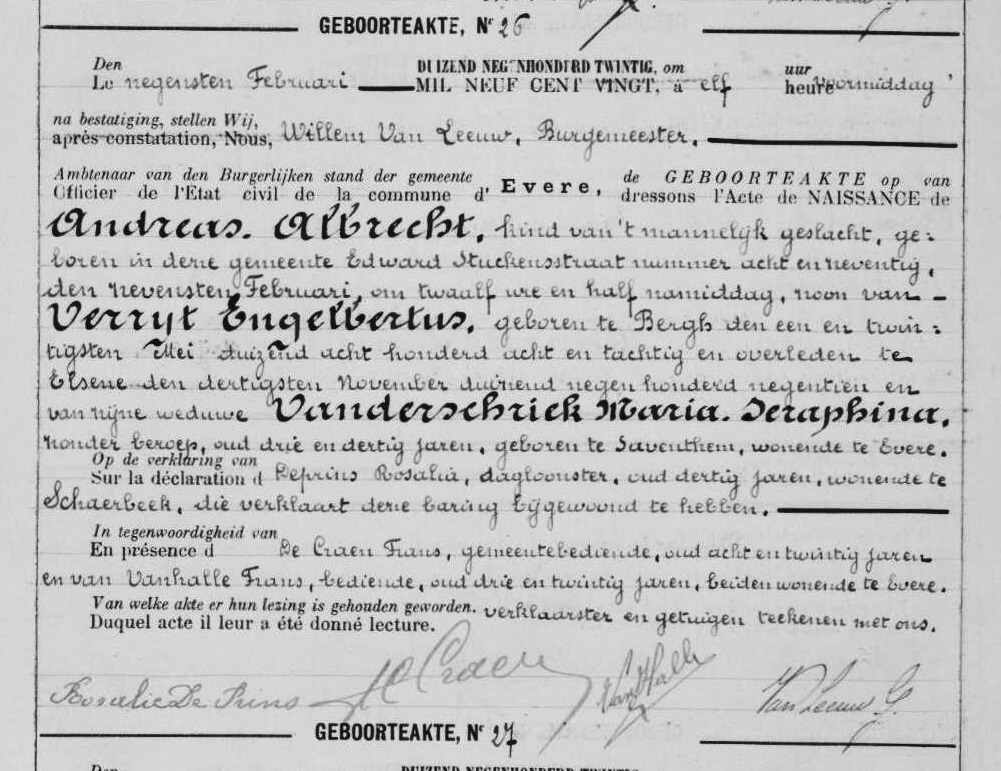 GEBOORTEAKTE, Nr 26
Den
Le negensten Februari
DUIZEND NEGENHONDERD TWINTIG, om
MIL NEUF CENT VINGT, à elf
uur
heure voormiddag
na bestatiging, stellen Wij,
après constatation, Nous, Willem Van Leeuw, Burgemeester.
Ambtenaar van den Burgerlijken stand der gemeente
Officier de l'Etat civil de la commune d' Evere,
de GEBOORTEAKTE op van
dressons l'Acte de NAISSANCE de
Andreas. Albrecht, kind van 't mannelijk geslacht, ge:
boren in deze gemeente Edward Stuckensstraat nummer acht en zeventig,
den zevensten Februari, om twaalf ure en half namiddag, zoon van
Verryt Engelbertus, geboren te Bergh den een en twin:
tigsten Mei duizend acht honderd acht en tachtig en overleden te
Elsene den dertigsten November duizend negen honderd negentien en
van zijne weduwe Vanderschriek Maria. Seraphina,
zonder beroep, oud drie en dertig jaren, geboren te Saventhem, wonende te Evere.
Op de verklaring van
Sur la déclaration d Deprins Rosalia, dagloonster, oud dertig jaren, wonende te
Schaerbeek, die verklaart deze baring bijgewoond te hebben.
In tegenwoordigheid van
En présence d De Craen Frans, gemeentebediende, oud acht en twintig jaren
en van Vanhalle Frans, bediende, oud drie en twintig jaren, beiden wonende te Evere.
Van welke akte er hun lezing is gehouden geworden.
Duquel acte il leur a été donné lecture. verklaarster en getuigen teekenen met ons.
Rosalie De Prins
De Craen
VanHalle
Van Leeuw G.
GEBOORTEAKTE, Nr 27
Den
DUIZEND NEGENHONDERD TWINTIG